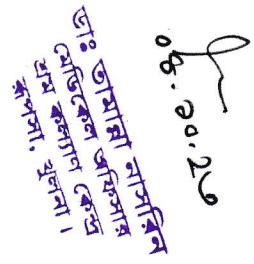 ০৪.১০.২৩
ডাঃ তামান্না নাসরিন
মেডিকেল অফিসার
কল্যাণ কেন্দ্র
রূপসা, খুলনা।